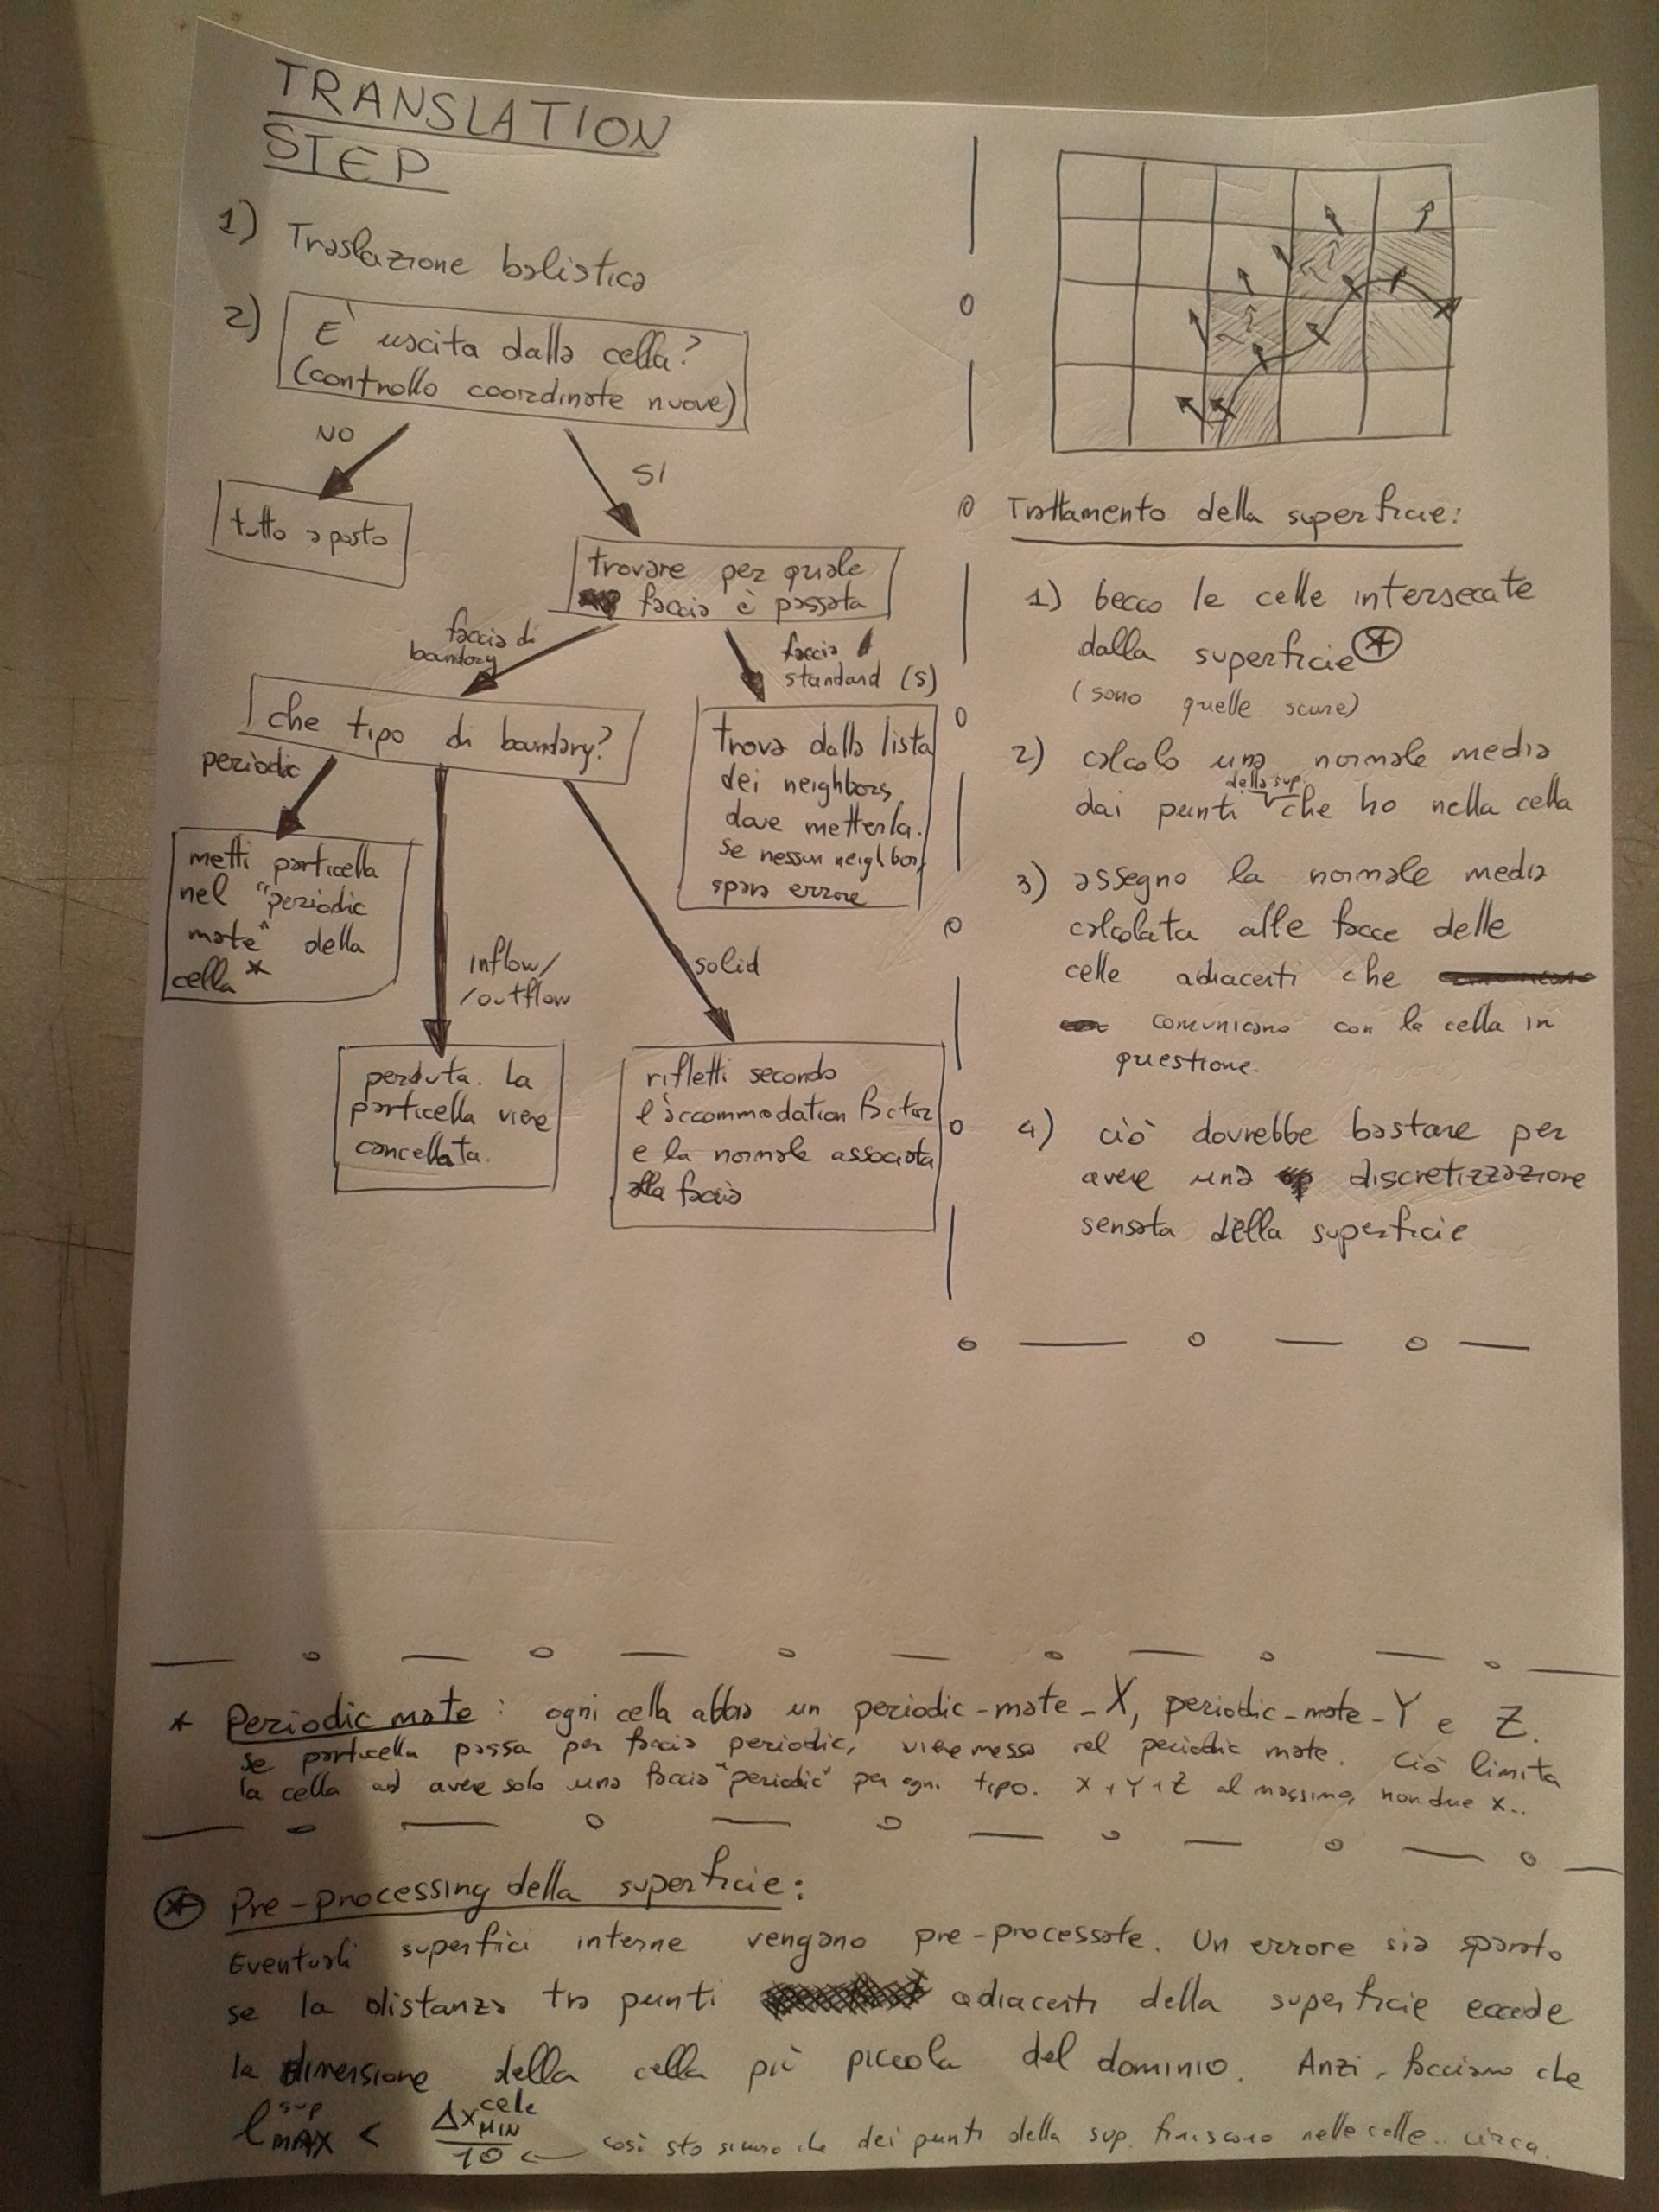 TRANSLATION
STEP
1) Traslazione balistica
2) E' uscita dalla cella?
(controllo coordinate nuove)
NO
SI
tutto a posto
trovare per quale
faccia è passata
faccia di
boundary
faccia
standard (S)
che tipo di boundary?
trova dalla lista
dei neighbors
dove metterla.
se nessun neighbor,
spara errore
periodic
metti particella
nel "periodic
mate" della
cella *
inflow/
/outflow
solid
perduta. La
particella viene
cancellata.
rifletti secondo
l'accommodation factor
e la normale associata
alla faccia
Trattamento della superficie:
1) becco le celle intersecate
dalla superficie *
(sono quelle scure)
2) calcolo una normale media
della sup.
dai punti che ho nella cella
3) assegno la normale media
calcolata alle facce delle
celle adiacenti che
comunicano con la cella in
questione.
4) ciò dovrebbe bastare per
avere una discretizzazione
sensata della superficie
* Periodic mate: ogni cella abbia un periodic-mate-X, periodic-mate-Y e Z.
se particella passa per faccia periodic, viene messa nel periodic mate. Ciò limita
la cella ad avere solo una faccia "periodic" per ogni tipo. X+Y+Z al massimo, non due X..
* Pre-processing della superficie:
Eventuali superfici interne vengano pre-processate. Un errore sia sparato
se la distanza tra punti adiacenti della superficie eccede
la dimensione della cella più piccola del dominio. Anzi, facciamo che
l sup MAX < Δx celle MIN / 10 ← così sto sicuro che dei punti della sup. finiscano nelle celle.. circa.